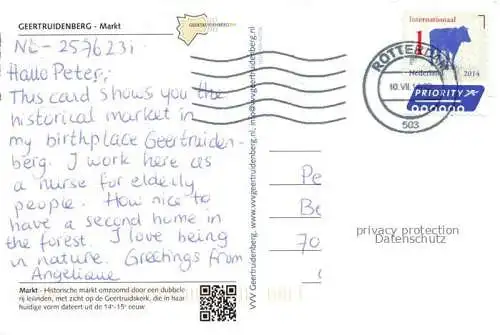 GEERTRUIDENBERG - Markt
GEERTRUIDENBERG
NL-2596231
Hallo Peter,
This card shows you the
historical market in
my birthplace Geertruiden-
berg. I work here as
a nurse for elderly
people. How nice to
have a second home in
the forest. I love being
in nature. Greetings from
Angelique
Markt - Historische markt omzoomd door een dubbele
rij leilinden, met zicht op de Geertruidskerk, die in haar
huidige vorm dateert uit de 14e-15e eeuw
VVV Geertruidenberg www.vvvgeertruidenberg.nl, info@vvvgeertruidenberg.nl
Internationaal
1
Nederland 2014
PRIORITY
ROTTERDAM
10.VII.
503
Pe
Be
70
privacy protection
Datenschutz